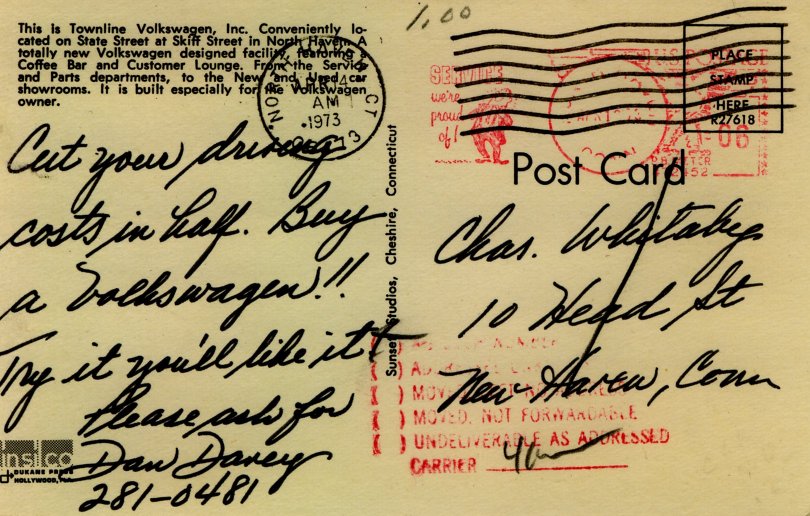 1.00
This is Townline Volkswagen, Inc. Conveniently lo-
cated on State Street at Skiff Street in North Haven. A
totally new Volkswagen designed facility, featuring a
Coffee Bar and Customer Lounge. From the Service
and Parts departments, to the New and Used car
showrooms. It is built especially for the Volkswagen
owner.
AM
1973
CT
SERVICE
we're
proud
of!
U.S. POSTAGE
.06
PLACE
STAMP
HERE
R27618
Post Card
Cut your driving
costs in half. Buy
a Volkswagen!!
Try it you'll like it
Please ask for
Dan Davey
281-0481
Sunset Studios, Cheshire, Connecticut
Chas. Whitaby
10 Head St
New Haven, Conn
( ) MOVED, NOT FORWARDABLE
( ) UNDELIVERABLE AS ADDRESSED
CARRIER
DUKANE PRESS
HOLLYWOOD, FLA.